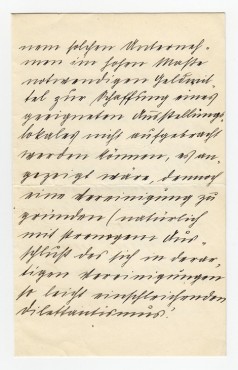 nem solchen Unterneh-
men im hohen Maße
notwendigen Geldmit
tel zur Schaffung eines
geeigneten Ausstellungs
lokales nicht aufgebracht
werden können, es an
gezeigt wäre, dennoch
eine Vereinigung zu
gründen (natürlich
mit strengem Aus-
schluß des sich in derar-
tigen Vereinigungen
so leicht einschleichenden
Dilettantismus!